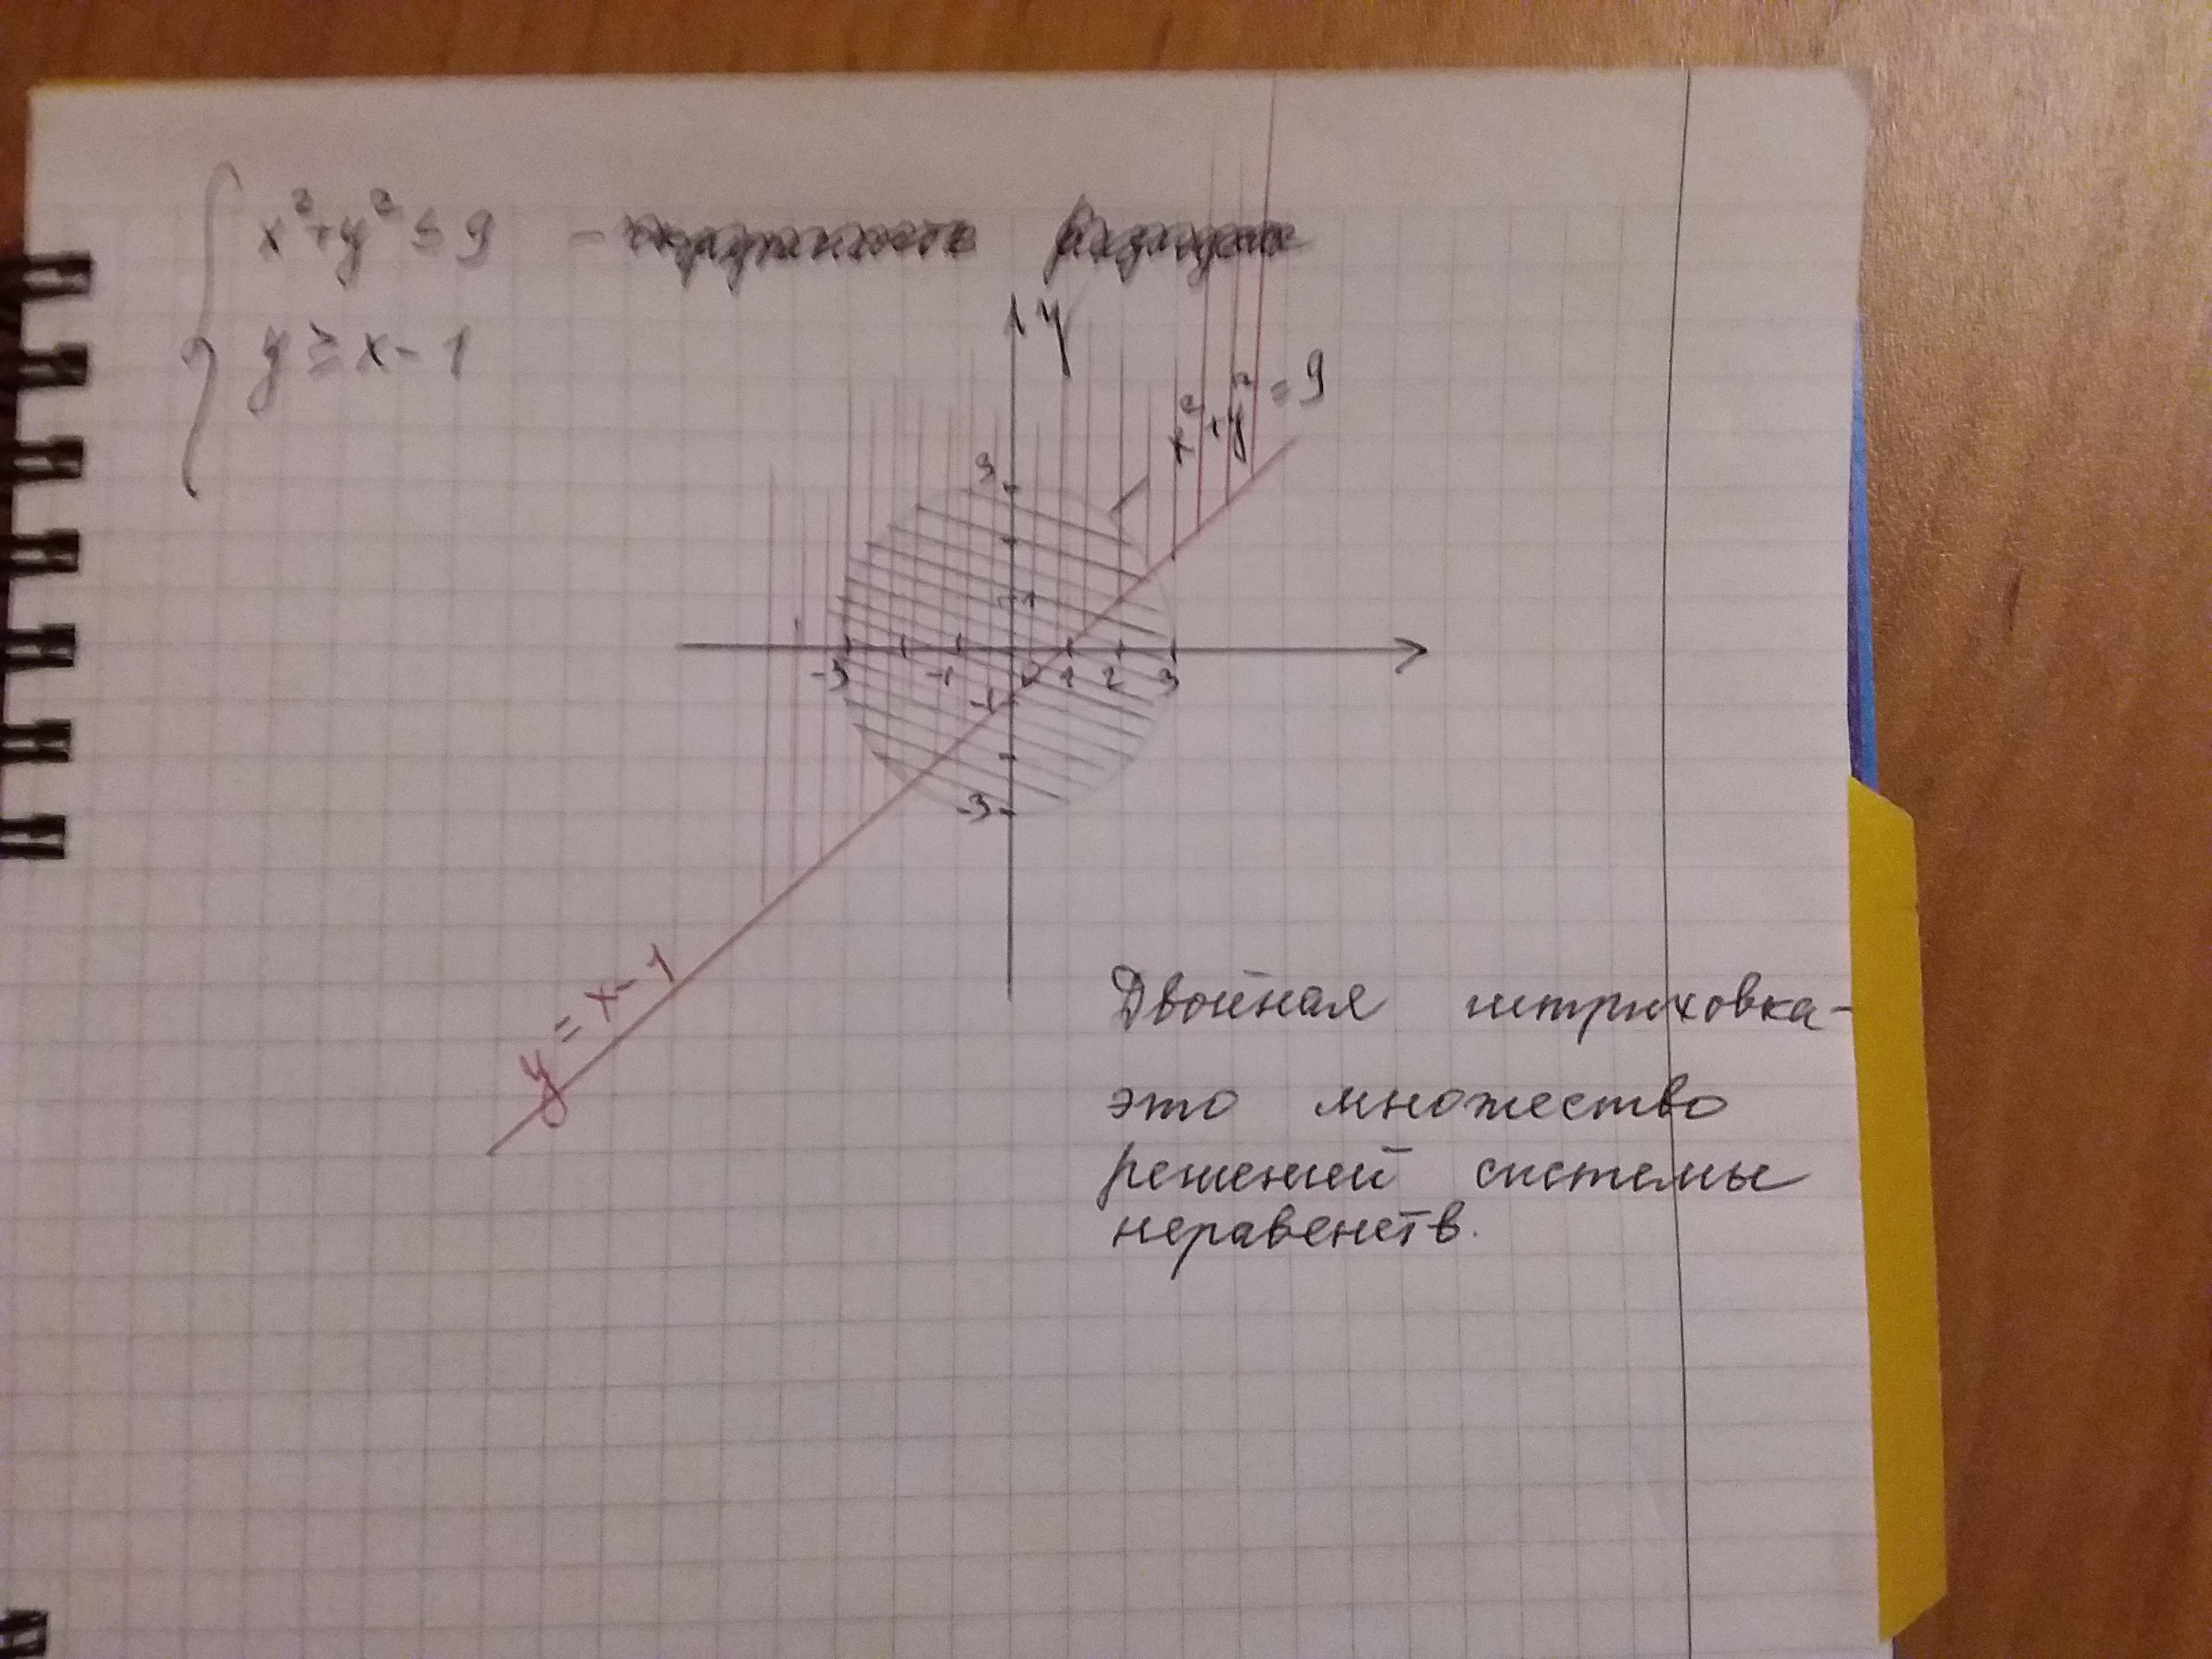 x²+y² ≤ 9 -
y ≥ x-1
y
x²+y² = 9
3
1
-3 -1 1 2 3
-1
-3
y = x-1
Двойная штриховка-
это множество
решений системы
неравенств.